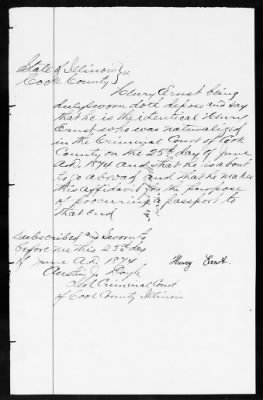 State of Illinois } ss
Cook County
Henry Ernst being
duly sworn doth depose and say
that he is the identical Henry
Ernst who was naturalized
in the Criminal Court of Cook
County on the 25th day of June
A.D. 1874 and that he is about
to go abroad and that he makes
this affidavit for the purpose
of procuring a passport to
that end
Subscribed and Sworn to
before me this 25th day
of June A.D. 1874
Henry Ernst
Austin J. Doyle
Clerk Criminal Court
of Cook County Illinois